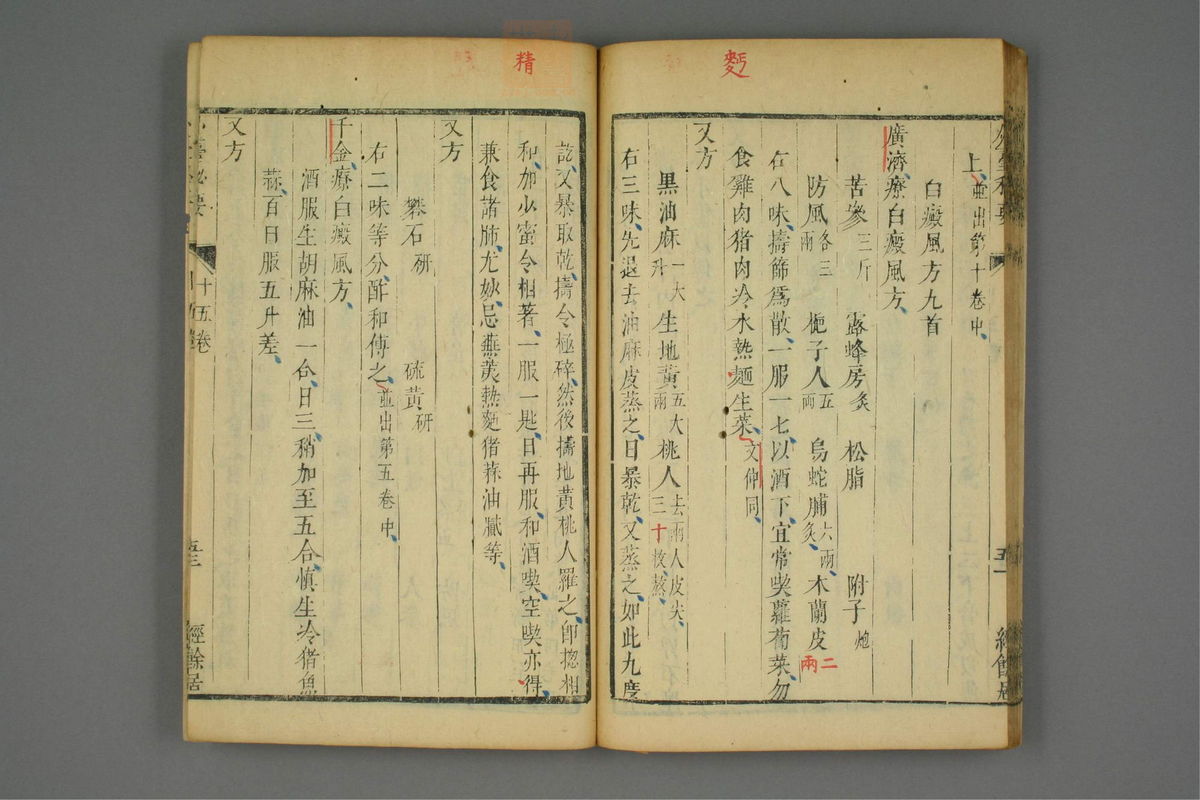 麫
上並出第十卷中
白癜風方九首
廣濟療白癜風方
苦參三斤 露蜂房炙 松脂 附子炮
防風各三兩 梔子人五兩 烏蛇脯六兩炙 木蘭皮二兩
右八味擣篩為散一服一七以酒下宜常喫蘿蔔菜勿
食雞肉猪肉冷水熱麵生菜文仲同
又方
黑油麻一大升 生地黃五大兩 桃人三十枚去兩人皮尖蒸
右三味先退去油麻皮蒸之日暴乾又蒸之如此九度
五一
經餘居
精
訖又暴取乾擣令極碎然後擣地黃桃人羅之即揔相
和加少蜜令相著一服一匙日再服和酒喫空喫亦得
兼食諸肺尤妙忌蕪荑熱麫猪蒜油膩等
又方
礬石研 硫黃研
右二味等分酢和傅之並出第五卷中
千金療白癜風方
酒服生胡麻油一合日三稍加至五合慎生冷猪魚
蒜百日服五升差
又方
十五卷
經餘居